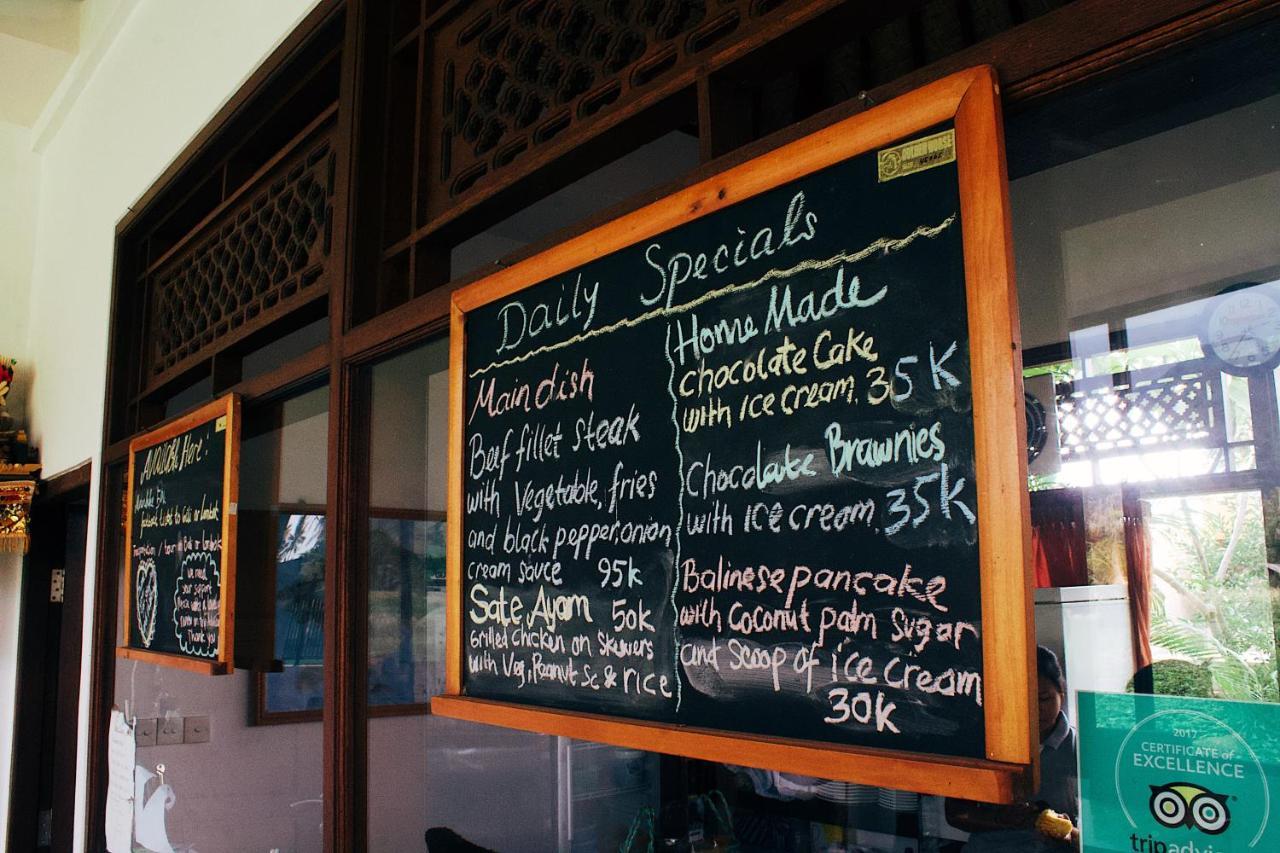 Daily Specials
Main dish
Beef fillet steak
with Vegetable, fries
and black pepper, onion
cream sauce 95k
Sate Ayam 50k
Grilled Chicken on Skewers
with Veg, Peanut Sc & rice
Home Made
Chocolate Cake
with Ice cream. 35K
Chocolate Brawnies
with Ice cream. 35k
Balinese pancake
with Coconut palm Sugar
and Scoop of ice Cream
30k
Available Here!
we need
your support
Thank you
2017
CERTIFICATE of
EXCELLENCE